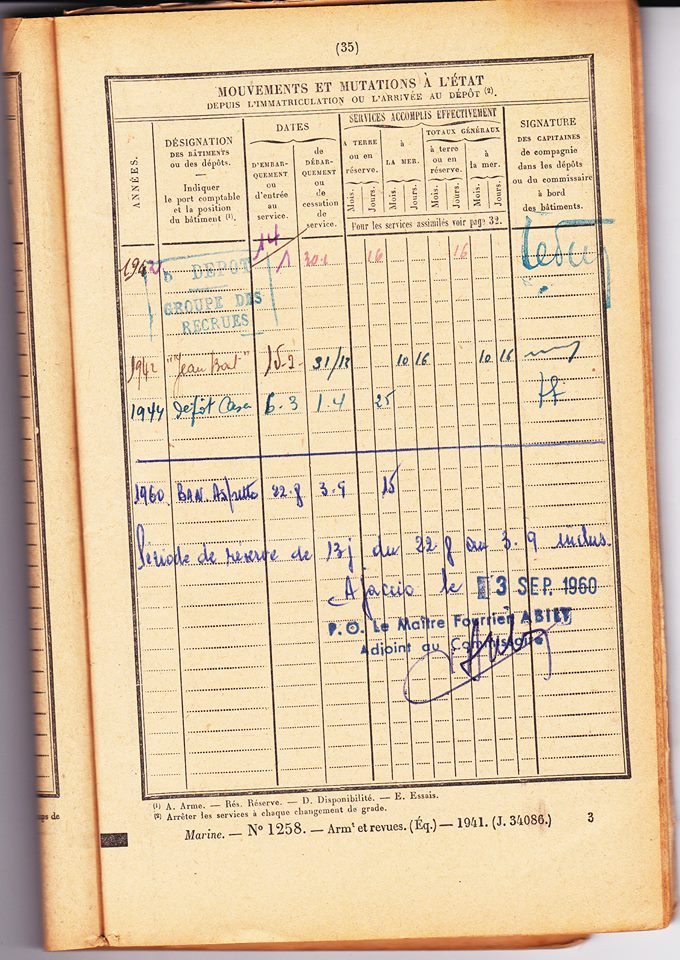 (35)
MOUVEMENTS ET MUTATIONS À L'ÉTAT
DEPUIS L'IMMATRICULATION OU L'ARRIVÉE AU DÉPÔT (2).
ANNÉES.
DÉSIGNATION
DES BÂTIMENTS
ou des dépôts.
—
Indiquer
le port comptable
et la position
du bâtiment (1).
DATES
D'EMBAR-
QUEMENT
ou
d'entrée
au
service.
de
DÉBAR-
QUEMENT
ou
de
cessation
de
service.
SERVICES ACCOMPLIS EFFECTIVEMENT
A TERRE
ou en
réserve.
à
LA MER.
TOTAUX GÉNÉRAUX
à terre
ou en
réserve.
à
la mer.
Mois. Jours. Mois. Jours. Mois. Jours. Mois. Jours.
Pour les services assimilés voir page 32.
SIGNATURE
DES CAPITAINES
de compagnie
dans les dépôts
ou du commissaire
à bord
des bâtiments.
DEPOT 16 16
GROUPE DES
RECRUES
1942 "Jean Bart" 15-2 31/12 10 16 10 16
1944 Dépôt Casa 6.3 1.4 25
1960 BAN. Aspretto 22.8 3.9 15
Période de réserve de 13j du 22 8 au 3.9 inclus.
Ajaccio le 3 SEP. 1960
P.O. Le Maître Fourrier ABILY
Adjoint au Commissaire
(1) A. Arme. — Rés. Réserve. — D. Disponibilité. — E. Essais.
(2) Arrêter les services à chaque changement de grade.
Marine. — N° 1258. — Armt et revues. (Éq.) — 1941. (J. 34086.) 3